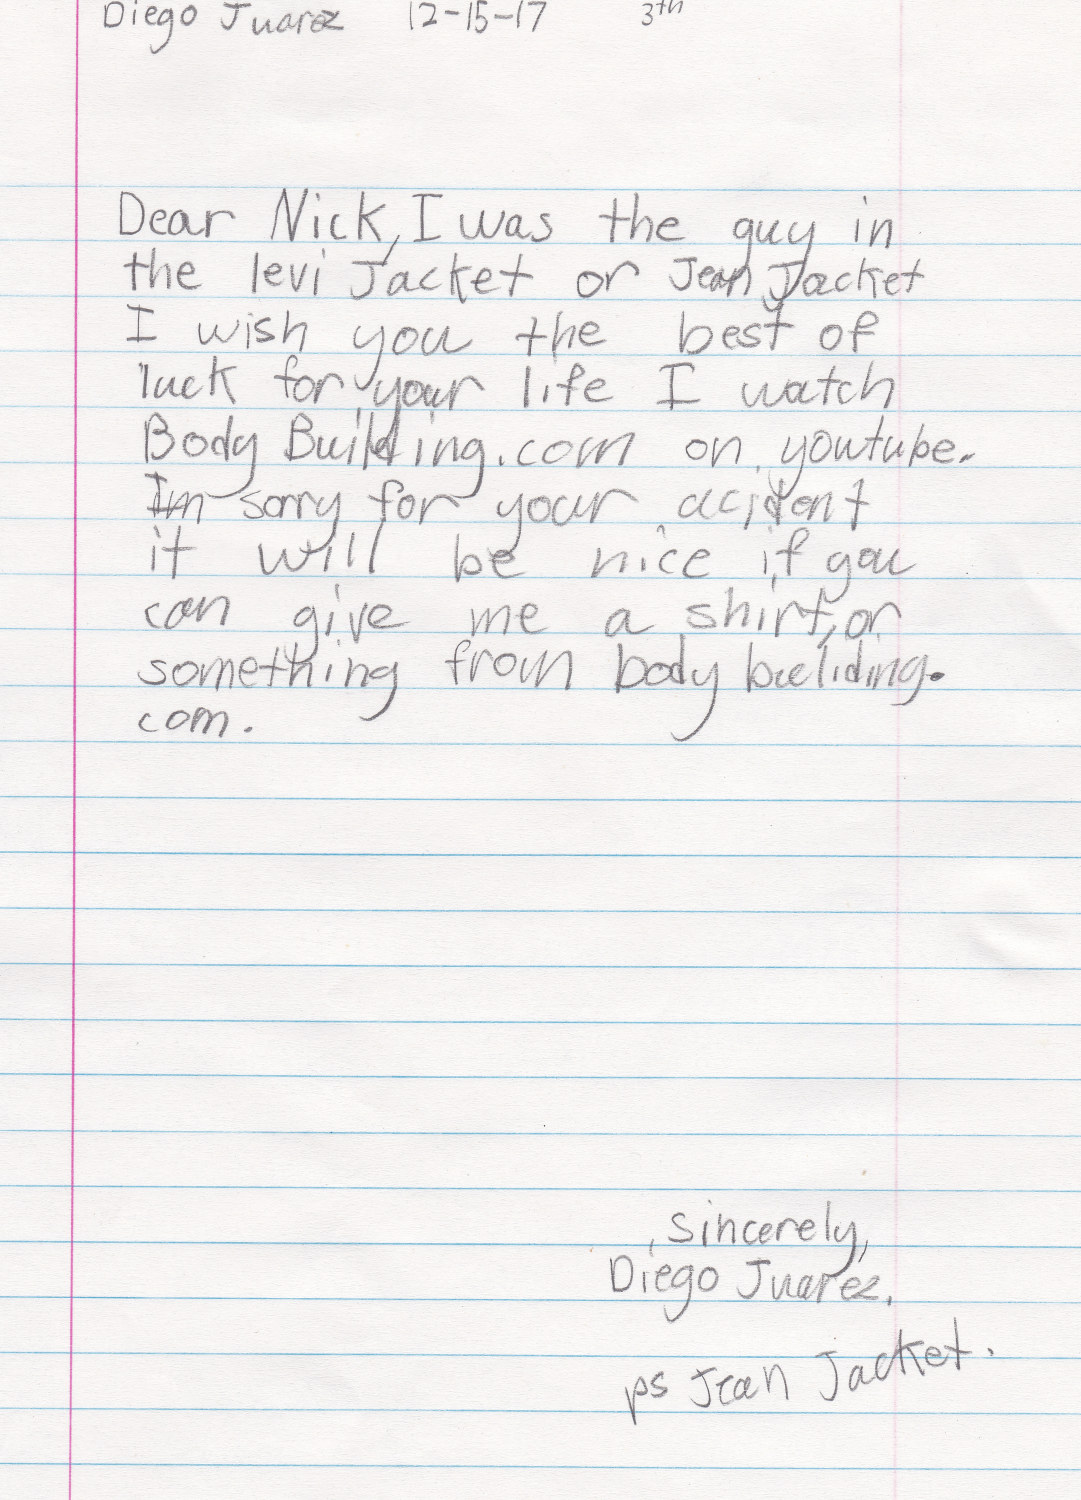 Diego Juarez 12-15-17 3th
Dear Nick, I was the guy in
the levi Jacket or Jean Jacket
I wish you the best of
luck for your life I watch
Body Building.com on youtube.
Im sorry for your acident
it will be nice if you
can give me a shirt, or
something from body bueliding.
com.
, Sincerely,
Diego Juarez.
ps Jean Jacket.